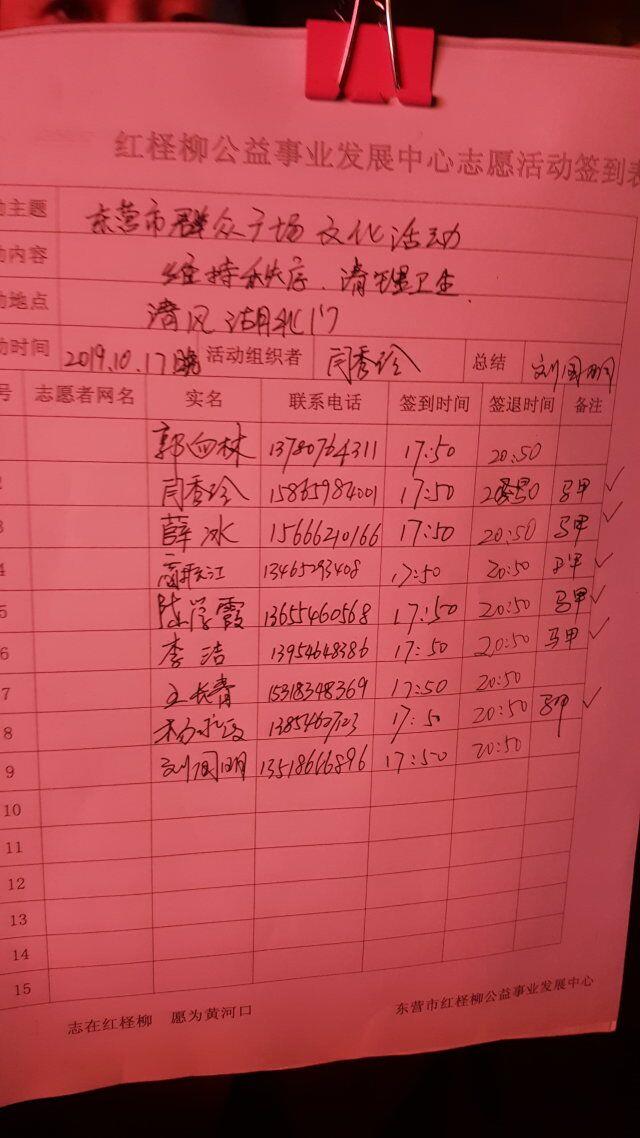 红柽柳公益事业发展中心志愿活动签到表
动主题 东营市群众广场文化活动
动内容 维持秩序、清理卫生
动地点 清风湖北门
动时间 2019.10.17晚 活动组织者 闫秀玲 总结 刘国明
号 志愿者网名 实名 联系电话 签到时间 签退时间 备注
郭向林 13780764311 17:50 20:50
2 闫秀玲 15865984001 17:50 20:50 马甲 ✓
3 薛冰 15666210166 17:50 20:50 马甲 ✓
4 江 13465293408 17:50 20:50 马甲 ✓
5 陈学霞 13655460568 17:50 20:50 马甲 ✓
6 李洁 13954648386 17:50 20:50 马甲 ✓
7 王长青 15318348369 17:50 20:50
8 杨 17:50 20:50 马甲 ✓
9 刘国明 13518666896 17:50 20:50
10
11
12
13
14
15
志在红柽柳 愿为黄河口 东营市红柽柳公益事业发展中心